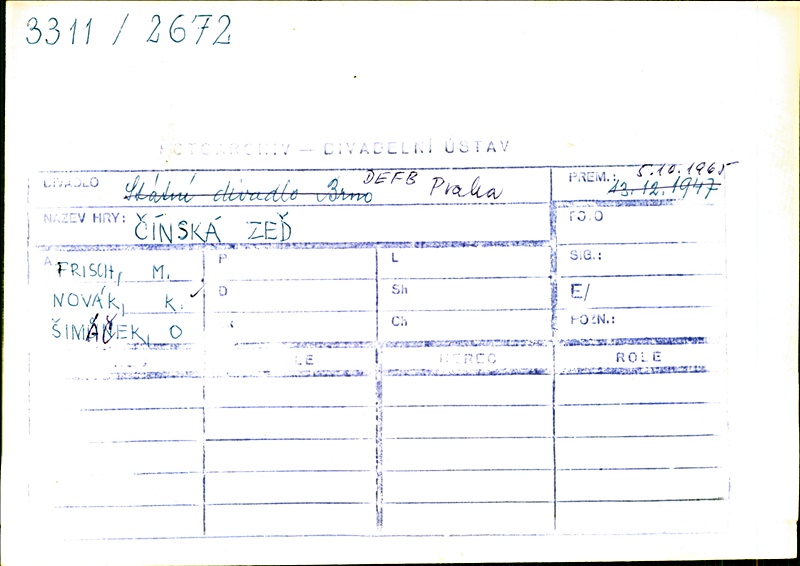 3311 / 2672
FOTOARCHIV — DIVADELNÍ ÚSTAV
DIVADLO Státní divadlo Brno DEFB Praha
PREM.: 5.10.1965 13.12.1947
NÁZEV HRY: ČÍNSKÁ ZEĎ
FOTO
A FRISCH, M.
P
L
SIG.:
NOVÁK, K.
D
Sh
E/
ŠIMÁČEK, O
K
Ch
POZN.:
LE
HEREC
ROLE